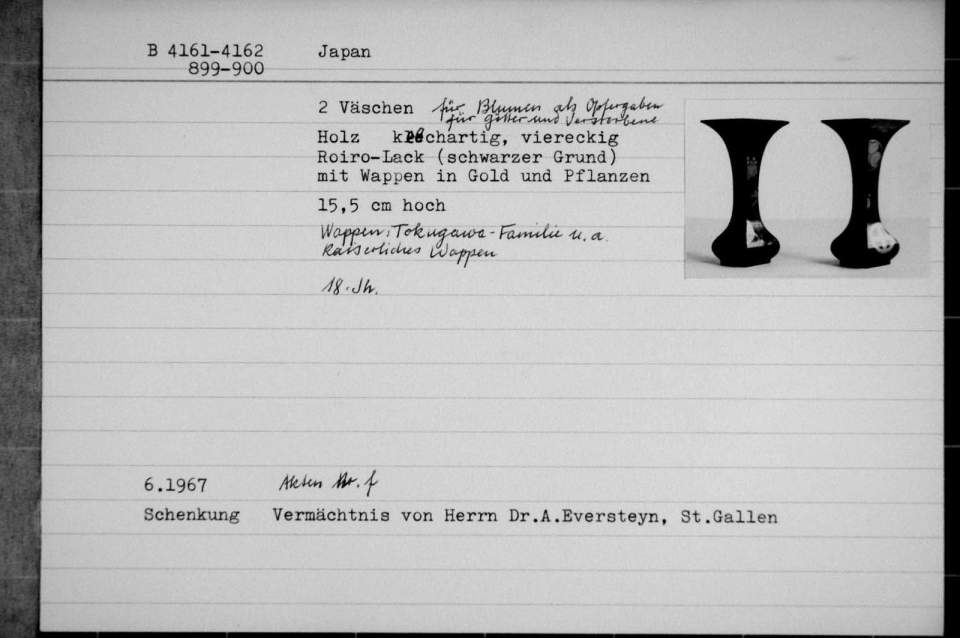 B 4161-4162 Japan
899-900
2 Väschen für Blumen als Opfergaben
für Götter und Verstorbene
Holz kelchartig, viereckig
Roiro-Lack (schwarzer Grund)
mit Wappen in Gold und Pflanzen
15,5 cm hoch
Wappen: Tokugawa-Familie u.a.
Kaiserliches Wappen
18. Jh.
6.1967 Akten Nr. f
Schenkung Vermächtnis von Herrn Dr.A.Eversteyn, St.Gallen